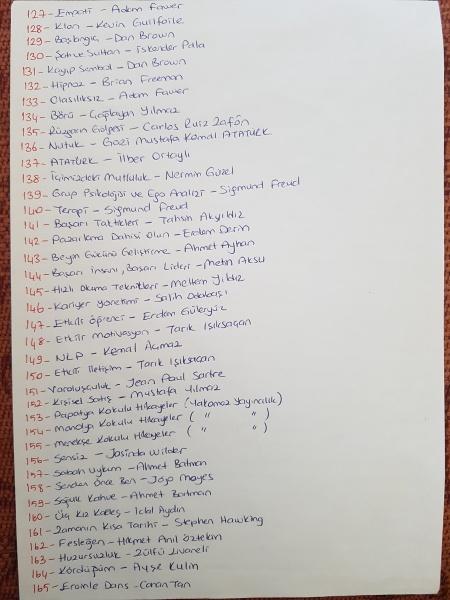 127- Empati - Adam Fawer
128- Klan - Kevin Guilfoile
129- Başlangıç - Dan Brown
130- Şah ve Sultan - İskender Pala
131- Kayıp Sembol - Dan Brown
132- Hipnoz - Brian Freeman
133- Olasılıksız - Adam Fawer
134- Börü - Çağlayan Yılmaz
135- Rüzgarın Gölgesi - Carlos Ruiz Zafón
136- Nutuk - Gazi Mustafa Kemal ATATÜRK
137- ATATÜRK - İlber Ortaylı
138- İçimizdeki Mutluluk - Nermin Güzel
139- Grup Psikolojisi ve Ego Analizi - Sigmund Freud
140- Terapi - Sigmund Freud
141- Başarı Taktikleri - Tahsin Akyıldız
142- Pazarlama Dahisi Olun - Erdem Derin
143- Beyin Gücünü Geliştirme - Ahmet Ayhan
144- Başarı İnsanı, Başarı Lideri - Metin Aksu
145- Hızlı Okuma Teknikleri - Meltem Yıldız
146- Kariyer Yönetimi - Salih Odabaşı
147- Etkili Öğrenci - Erdem Güleryüz
148- Etkili Motivasyon - Tarık Işıksaçan
149- NLP - Kemal Açmaz
150- Etkili İletişim - Tarık Işıksaçan
151- Varoluşçuluk - Jean Paul Sartre
152- Kişisel Satış - Mustafa Yılmaz
153- Papatya Kokulu Hikayeler (Yakamoz Yayıncılık)
154- Manolya Kokulu Hikayeler ( " " )
155- Menekşe Kokulu Hikayeler ( " " )
156- Sensiz - Jasinda Wilder
157- Sabah Uykum - Ahmet Batman
158- Senden Önce Ben - Jojo Moyes
159- Soğuk Kahve - Ahmet Batman
160- Üç Kız Kardeş - İclal Aydın
161- Zamanın Kısa Tarihi - Stephen Hawking
162- Fesleğen - Hikmet Anıl Öztekin
163- Huzursuzluk - Zülfü Livaneli
164- Kördüğüm - Ayşe Kulin
165- Eroinle Dans - Canan Tan